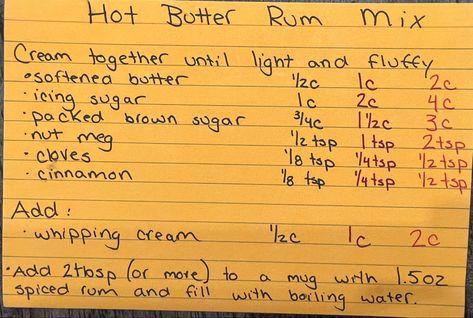 Hot Butter Rum Mix
Cream together until light and fluffy
• softened butter 1/2c 1c 2c
· icing sugar 1c 2c 4c
· packed brown sugar 3/4c 1 1/2c 3c
· nut meg 1/2 tsp 1 tsp 2 tsp
· cloves 1/8 tsp 1/4 tsp 1/2 tsp
· cinnamon 1/8 tsp 1/4 tsp 1/2 tsp
Add:
· whipping cream 1/2c 1c 2c
· Add 2 tbsp (or more) to a mug with 1.5oz
spiced rum and fill with boiling water.